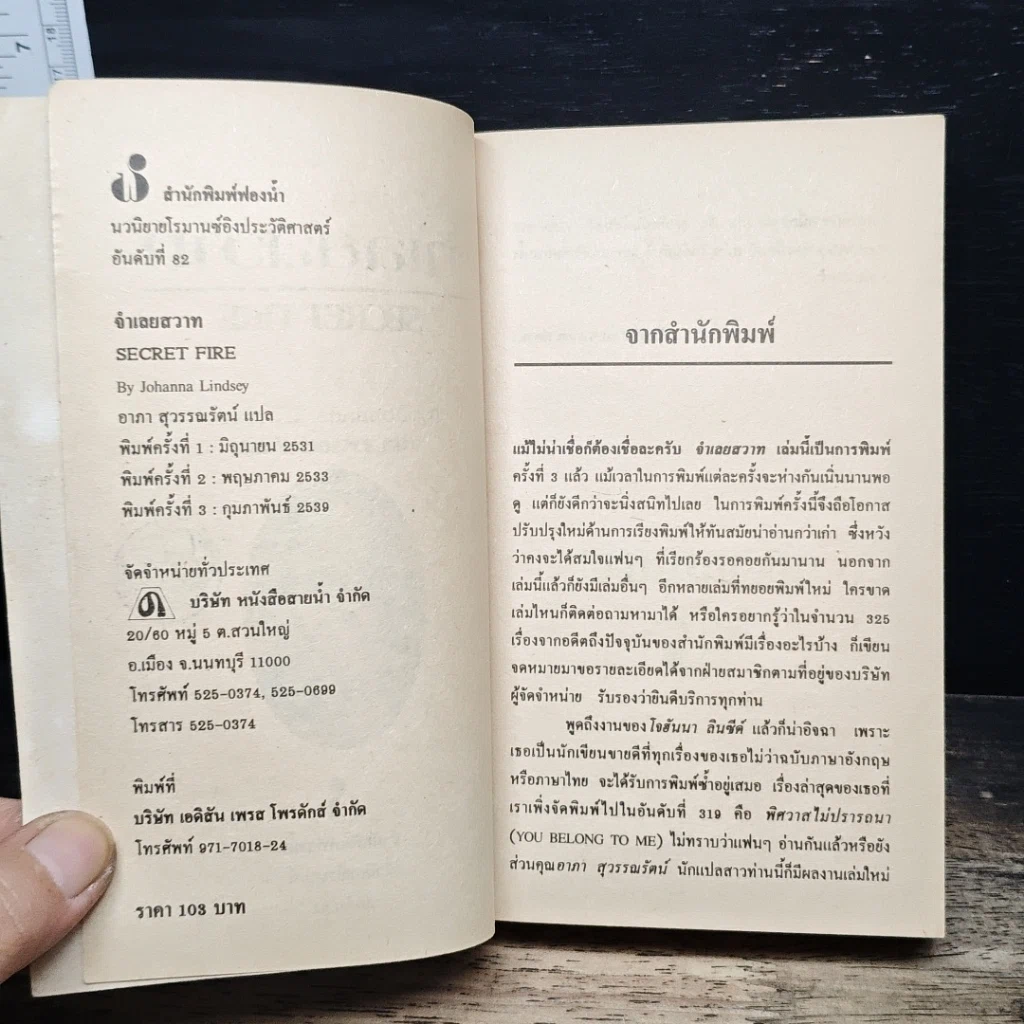 สำนักพิมพ์ฟองน้ำ
นวนิยายโรมานซ์อิงประวัติศาสตร์
อันดับที่ 82
จำเลยสวาท
SECRET FIRE
By Johanna Lindsey
อาภา สุวรรณรัตน์ แปล
พิมพ์ครั้งที่ 1 : มิถุนายน 2531
พิมพ์ครั้งที่ 2 : พฤษภาคม 2533
พิมพ์ครั้งที่ 3 : กุมภาพันธ์ 2539
จัดจำหน่ายทั่วประเทศ
บริษัท หนังสือสายน้ำ จำกัด
20/60 หมู่ 5 ต.สวนใหญ่
อ.เมือง จ.นนทบุรี 11000
โทรศัพท์ 525-0374, 525-0699
โทรสาร 525-0374
พิมพ์ที่
บริษัท เอดิสัน เพรส โพรดักส์ จำกัด
โทรศัพท์ 971-7018-24
ราคา 103 บาท
จากสำนักพิมพ์
แม้ไม่น่าเชื่อก็ต้องเชื่อละครับ จำเลยสวาท เล่มนี้เป็นการพิมพ์
ครั้งที่ 3 แล้ว แม้เวลาในการพิมพ์แต่ละครั้งจะห่างกันเนิ่นนานพอ
ดู แต่ก็ยังดีกว่าจะนิ่งสนิทไปเลย ในการพิมพ์ครั้งนี้จึงถือโอกาส
ปรับปรุงใหม่ด้านการเรียงพิมพ์ให้ทันสมัยน่าอ่านกว่าเก่า ซึ่งหวัง
ว่าคงจะได้สมใจแฟนๆ ที่เรียกร้องรอคอยกันมานาน นอกจาก
เล่มนี้แล้วก็ยังมีเล่มอื่นๆ อีกหลายเล่มที่ทยอยพิมพ์ใหม่ ใครขาด
เล่มไหนก็ติดต่อถามหามาได้ หรือใครอยากรู้ว่าในจำนวน 325
เรื่องจากอดีตถึงปัจจุบันของสำนักพิมพ์มีเรื่องอะไรบ้าง ก็เขียน
จดหมายมาขอรายละเอียดได้จากฝ่ายสมาชิกตามที่อยู่ของบริษัท
ผู้จัดจำหน่าย รับรองว่ายินดีบริการทุกท่าน
พูดถึงงานของ โจฮันนา ลินซีด์ แล้วก็น่าอิจฉา เพราะ
เธอเป็นนักเขียนขายดีที่ทุกเรื่องของเธอไม่ว่าฉบับภาษาอังกฤษ
หรือภาษาไทย จะได้รับการพิมพ์ซ้ำอยู่เสมอ เรื่องล่าสุดของเธอที่
เราเพิ่งจัดพิมพ์ไปในอันดับที่ 319 คือ พิศวาสไม่ปรารถนา
(YOU BELONG TO ME) ไม่ทราบว่าแฟนๆ อ่านกันแล้วหรือยัง
ส่วนคุณอาภา สุวรรณรัตน์ นักแปลสาวท่านนี้ก็มีผลงานเล่มใหม่
7
18
17